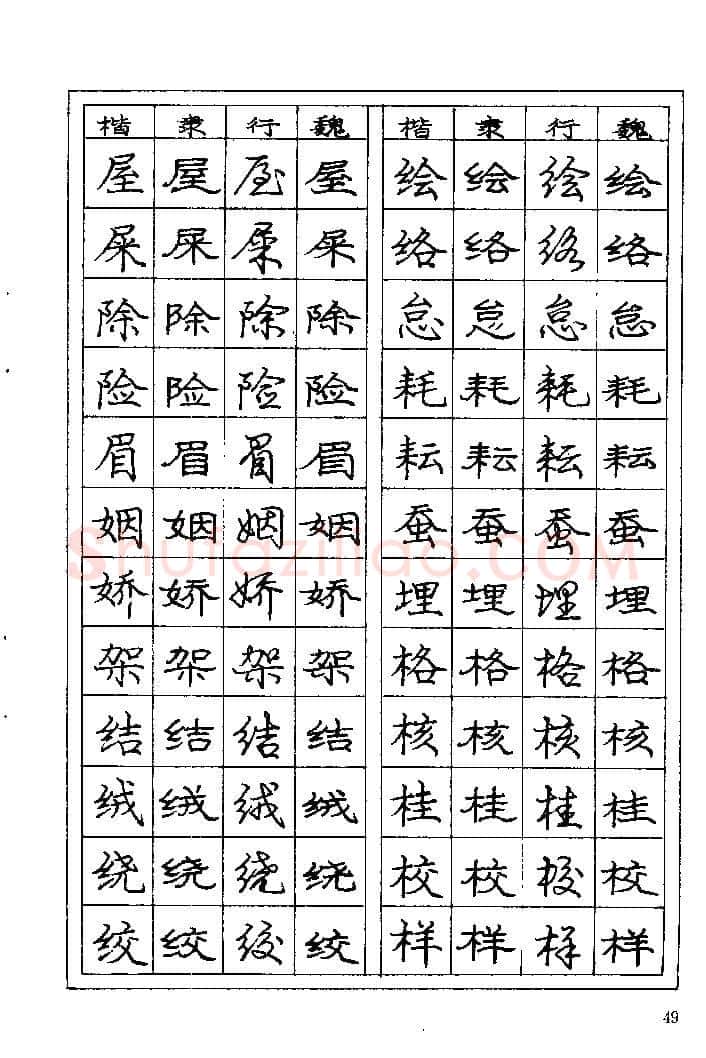 楷 隶 行 魏 楷 隶 行 魏
屋 屋 屋 屋 绘 绘 绘 绘
屎 屎 屎 屎 络 络 络 络
除 除 除 除 怠 怠 怠 怠
险 险 险 险 耗 耗 耗 耗
眉 眉 眉 眉 耘 耘 耘 耘
姻 姻 姻 姻 蚕 蚕 蚕 蚕
shufaziliao.COM
娇 娇 娇 娇 埋 埋 埋 埋
架 架 架 架 格 格 格 格
结 结 结 结 核 核 核 核
绒 绒 绒 绒 桂 桂 桂 桂
绕 绕 绕 绕 校 校 校 校
绞 绞 绞 绞 样 样 样 样
49